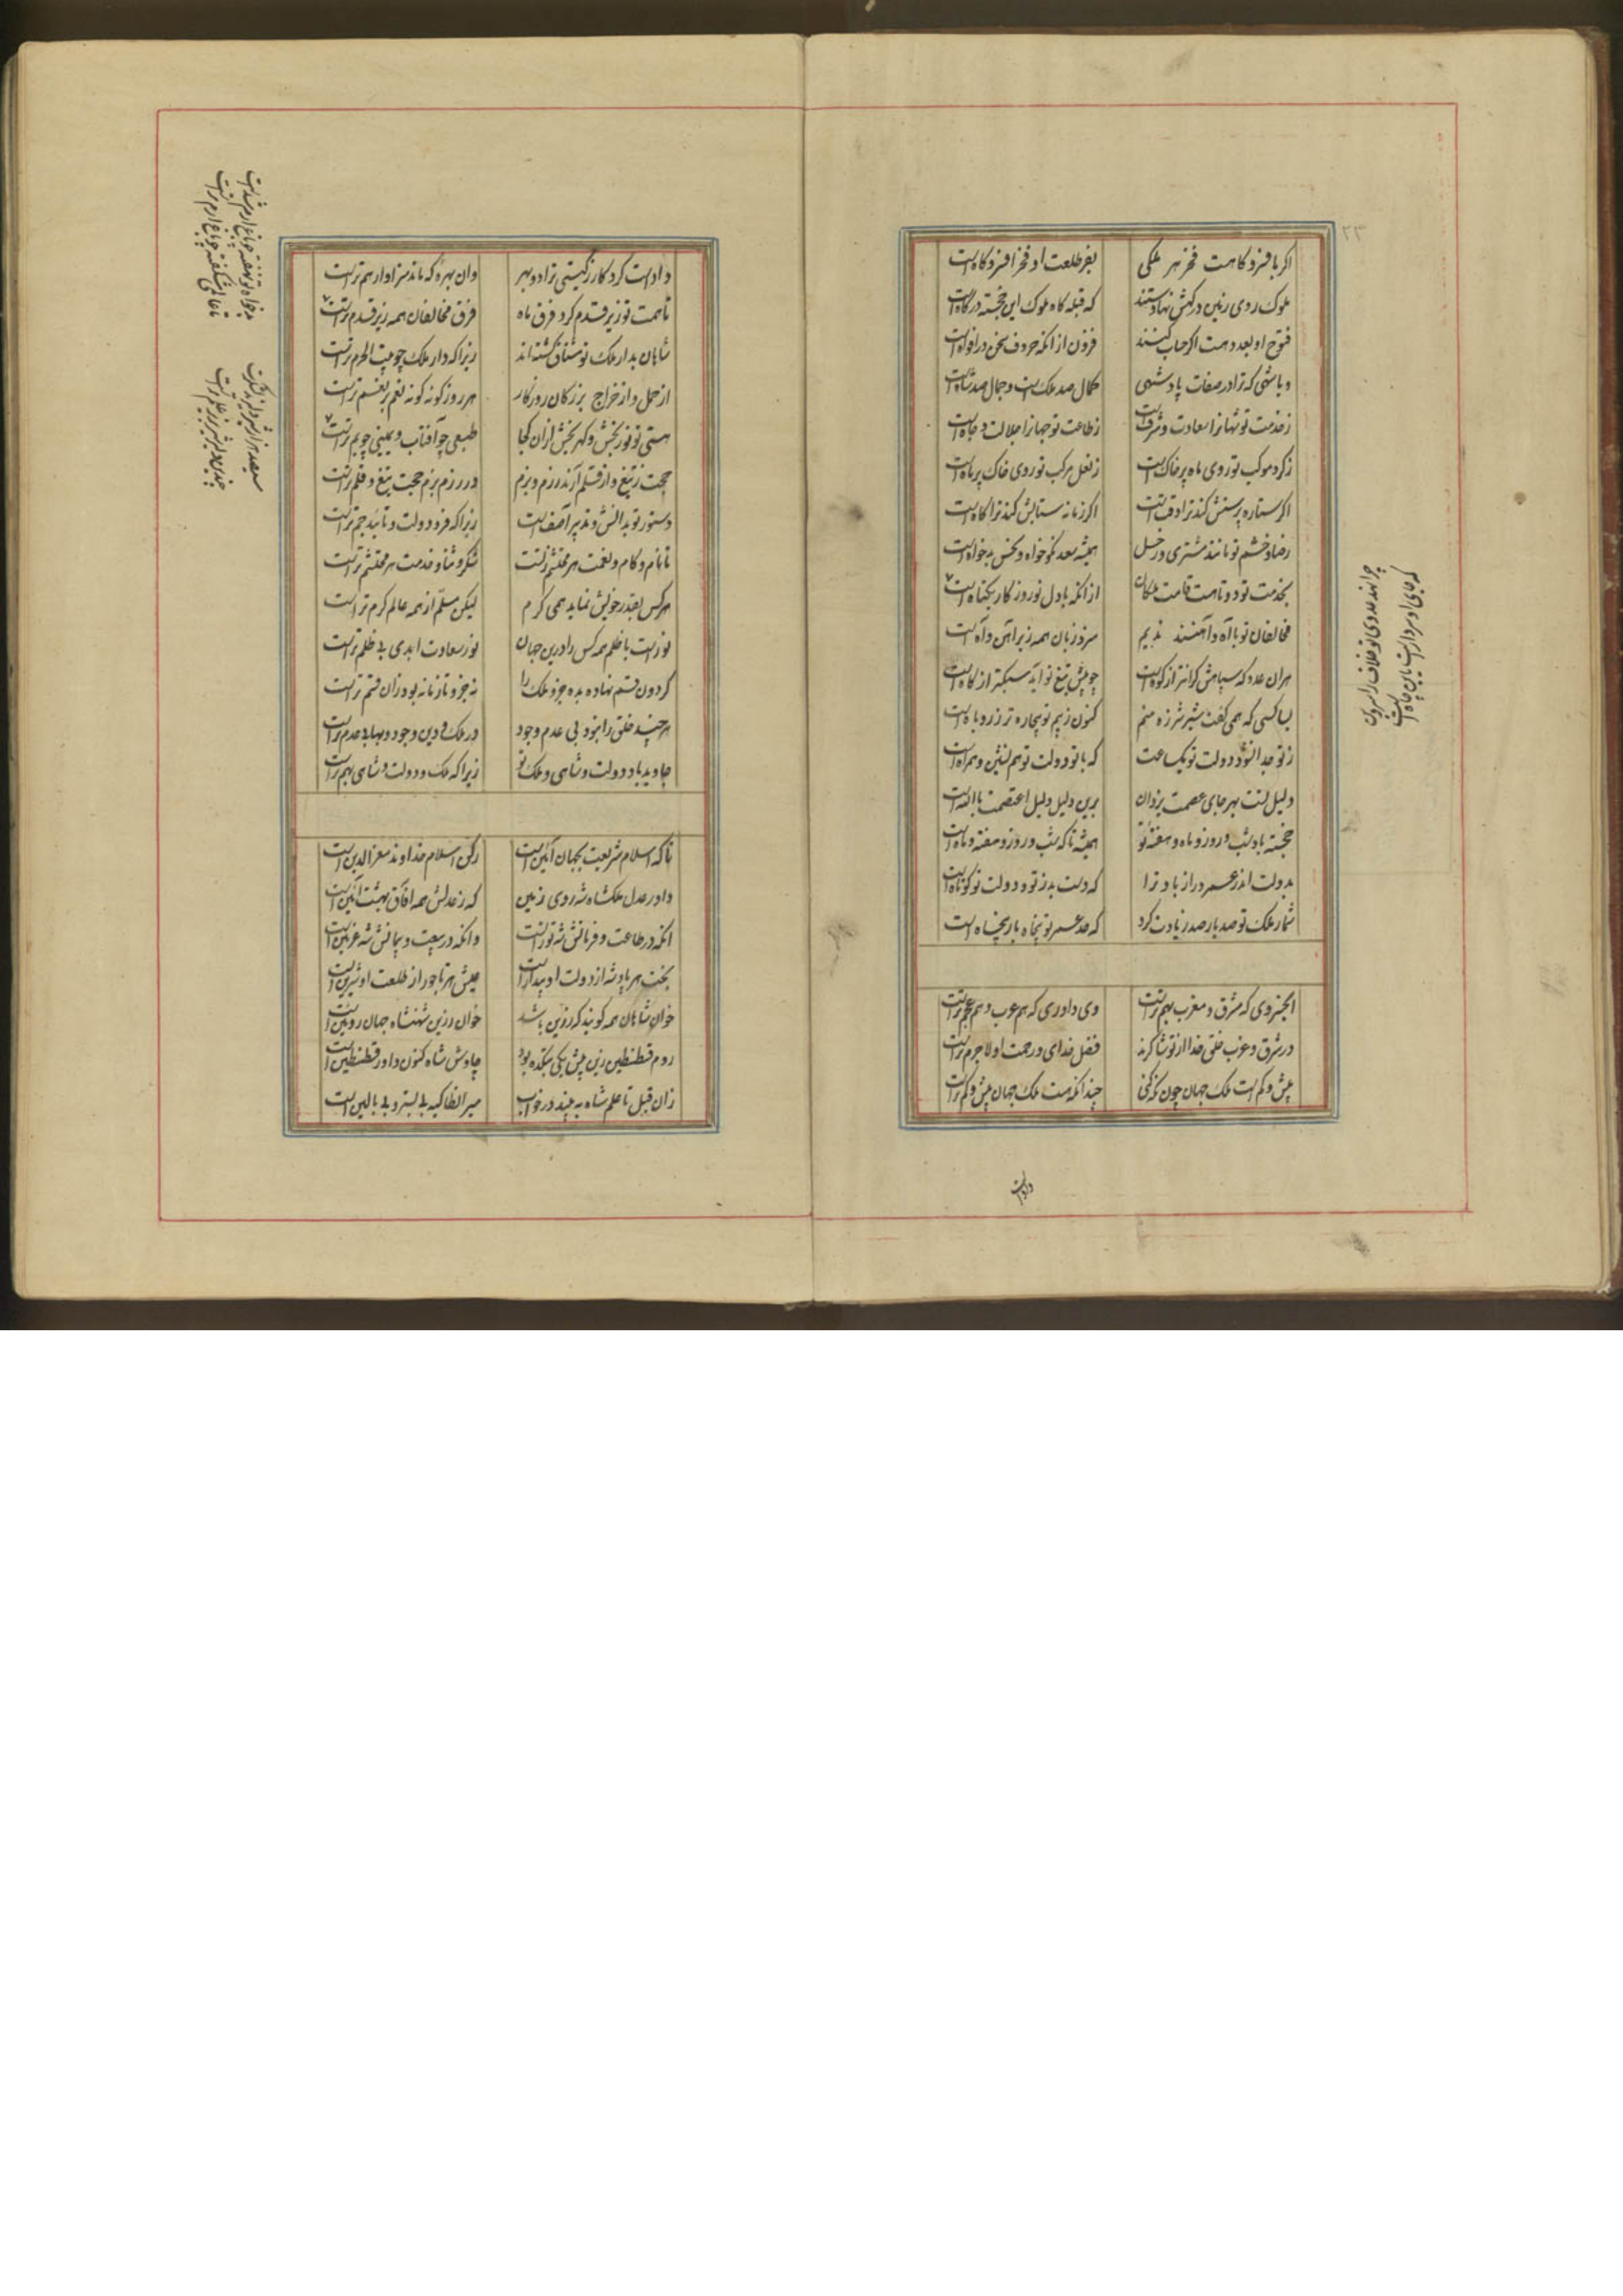 اکر با فسر و کاهست فخر هر ملکی بفر طلعت او فخر افسر و کاه است
ملوک روی زمین در کهش نهادستند که قبله کاه ملوک این خجسته درکاه است
فتوح او بعدد هست اکر حساب کنند فزون از انکه حروف سخن در افواه است
و یا شهی که ترا در صفات پادشهی کمال صد ملک است و جمال صد شاه است
ز خدمت تو شهانرا سعادت و شرف است ز طاعت تو جهانرا جلالت و جاه است
ز کرد موکب تو روی ماه پر خاک است ز نعل مرکب تو روی خاک پر ماه است
اکر ستاره پرستش کند ترا وقت است اکر زمانه ستایش کند ترا کاه است
رضا و خشم تو مانند مشتری و زحل همیشه سعد نکوخواه و نحس بدخواه است
بخدمت تو دو تا هست قامت ملکان از انکه با دل تو روزکار یکتاه است
مخالفان تو با آه و آهنند ندیم سر و زبان همه زیر آهن و آه است
هر ان عدو که سپاهش کرانتر از کوه است چو پیش تیغ تو آید سبکتر از کاه است
بسا کسی که همی کفت شیر شرزه منم کنون ز بیم تو بیچاره تر ز روباه است
ز تو جدا نشود دولت تو یک ساعت که با تو دولت تو همنشین و همراه است
دلیل تست بهر جای عصمت یزدان برین دلیل دلیل اعتصمت بالله است
خجسته باد شب و روز و ماه و هفته تو همیشه تا که شب و روز و هفته و ماه است
بدولت اندر عمر دراز باد ترا که دست بد ز تو و دولت تو کوتاه است
شمار ملک تو صد بار صد زیادت کرد که مد عمر تو پنجاه بار پنجاه است
که جای او سر دار است یا بن چاه است
ایخسروی که مشرق و مغرب بهم تراست وی داوری که هم عرب و هم عجم تراست
در شرق و غرب خلق خدا از تو شاکرند فضل خدای و رحمت او لاجرم تراست
بیش و کم است ملک جهان چون نکه کنی چندانکه هست ملک جهان بیش و کم تراست
داداست
داداست کردکار ز کیتی ترا دو بهر وان بهره که ماند سزاوار هم تراست
تا همت تو زیر قدم کرد فرق ماه فرق مخالفان همه زیر قدم تراست
شاهان بدار ملک تو مشتاق کشته اند زیرا که دار ملک چو بیت الحرم تراست
از حمل و از خراج بزرکان روزکار هر روز کونه کونه نعم بر نعم تراست
هستی تو نوربخش و کهربخش از ان کجا طبعی چو آفتاب و یمینی چو یم تراست
حجت ز تیغ و از قلم آرند رزم و بزم در رزم و بزم حجت تیغ و قلم تراست
دستور تو بدانش و تدبیر آصف است زیرا که فر و دولت و تایید جم تراست
تا نام و کام و نعمت هر محتشم ز تست شکر و ثنا و خدمت هر محتشم تراست
هر کس بقدر خویش نماید همی کرم لیکن مسلم از همه عالم کرم تراست
نور است با ظلم همه کس را درین جهان نور سعادت ابدی بی ظلم تراست
کردون قسم نهاده بده جزو ملک را نه جزو تا زمانه بود زان قسم تراست
هر چند خلق را نبود بی عدم وجود در ملک و دین وجود و بها بی عدم تراست
جاوید باد دولت و شاهی و ملک تو زیرا که ملک و دولت و شاهی بهم تراست
بدخواه تو نهفته
تا عالمی شکفته چو باغ ارم تراست
تا که اسلام شریعت بجهان آئین است رکن اسلام خداوند معزالدین است
داور عدل ملکشاه شه روی زمین که ز عدلش همه آفاق بهشت آئین است
انکه در طاعت و فرمانش شه توران است وانکه در بیعت و پیمانش شه غزنین است
بخت هر پادشه از دولت او بیدار است عیش هر تاجور از طلعت او شیرین است
خوان شاهان همه کویند که زرین باشد خوان زرین شهنشاه جهان روئین است
روم قسطنطین زین پیش یکی بتکده بود چاوش شاه کنون داور قسطنطین است
زان قبل تا علم شاه به بیند در خواب میر انطاکیه بی بستر و بی بالین است